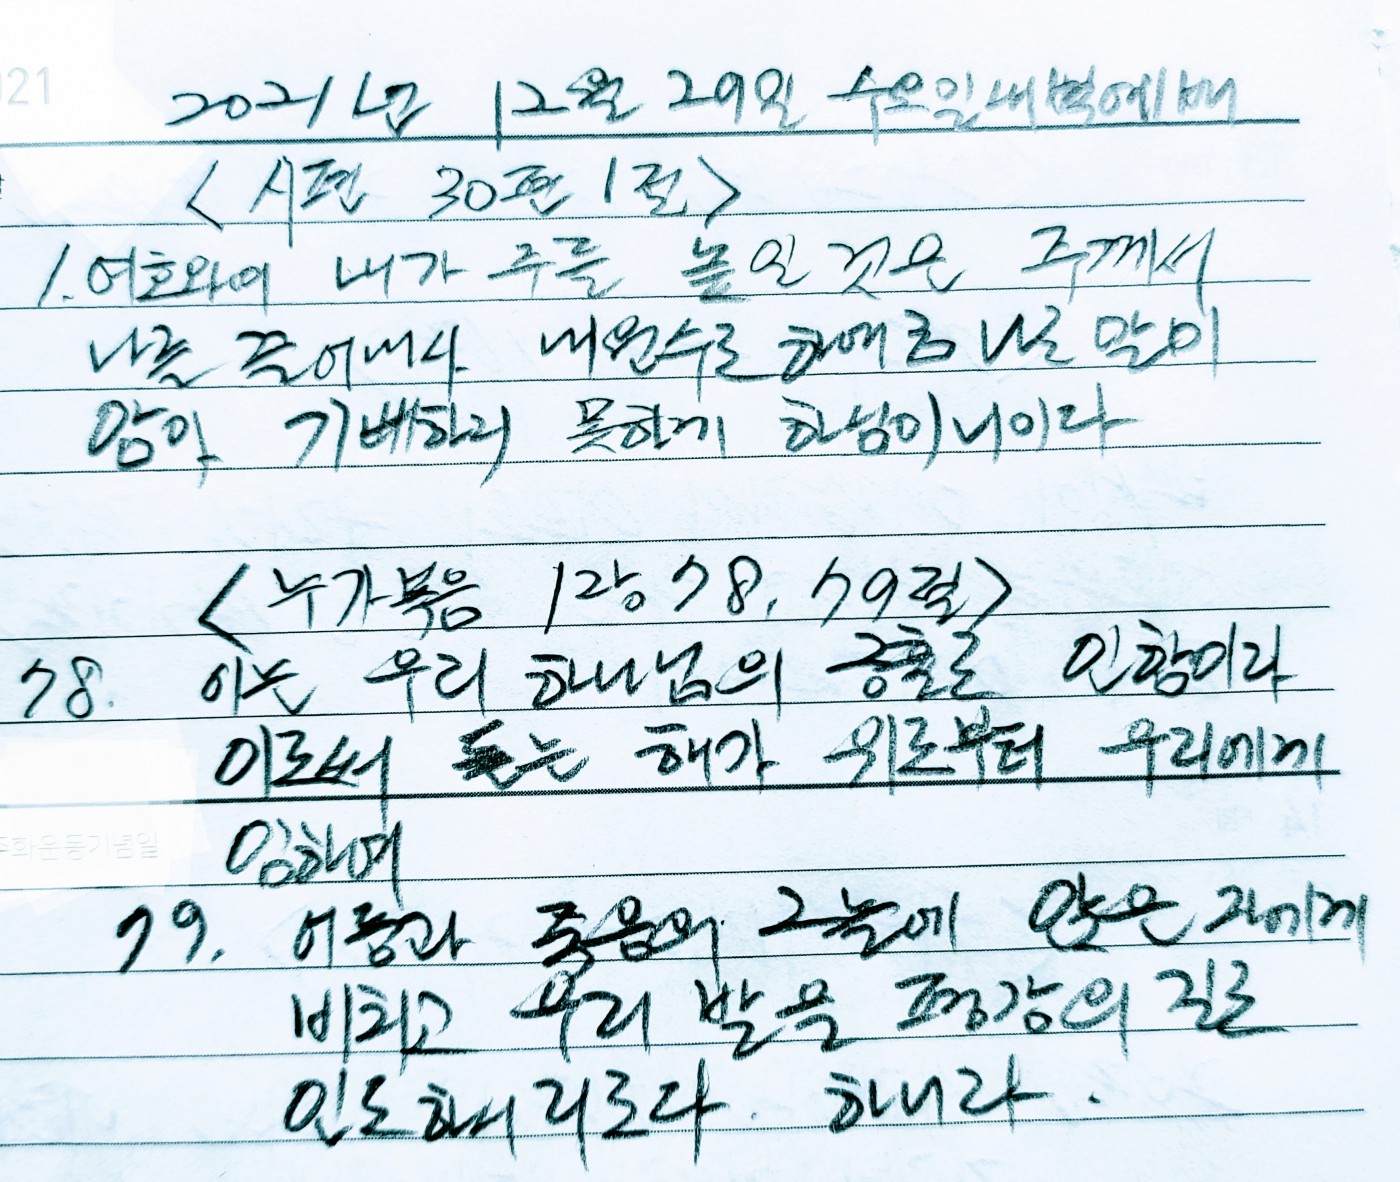 021
2021년 12월 29일 수요일새벽예배
<시편 30편 1절>
1. 여호와여 내가 주를 높일 것은 주께서
나를 끌어내사 내 원수로 하여금 나로 말미
암아 기뻐하지 못하게 하심이니이다
<누가복음 1장 78, 79절>
78. 이는 우리 하나님의 긍휼로 인함이라
이로써 돋는 해가 위로부터 우리에게
주화운동기념일
임하여
79. 어둠과 죽음의 그늘에 앉은 자에게
비치고 우리 발을 평강의 길로
인도하시리로다. 하니라.